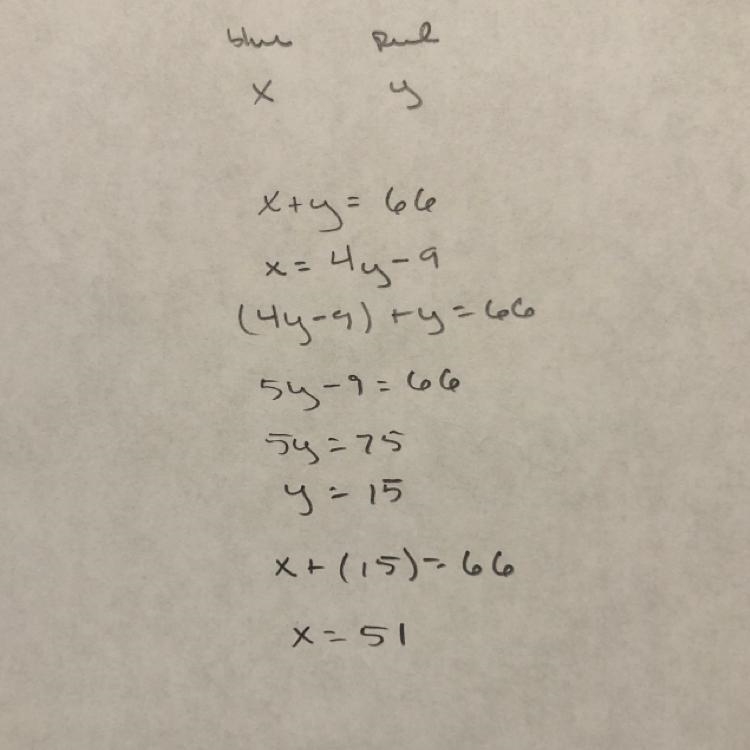 blue
x y
x+y = 66
x = 4y - 9
(4y-9) + y = 66
5y - 9 = 66
5y = 75
y = 15
x + (15) = 66
x = 51